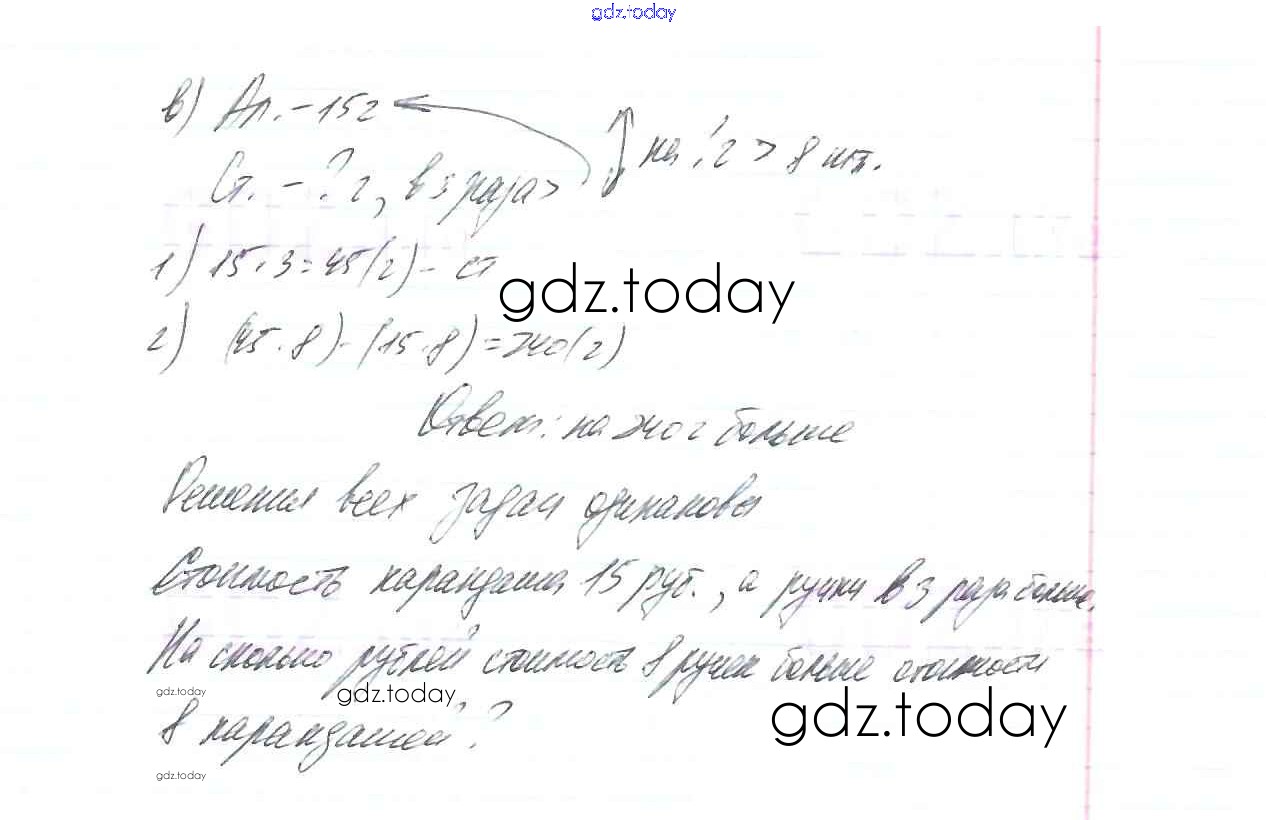 gdz.today
в) Ал. - 15 г
на ? г > 8 шт.
Ст. - ? г, в 3 раза >
1) 15 · 3 = 45 (г) - ст
gdz.today
2) (45 · 8) - (15 · 8) = 240 (г)
Ответ: на 240 г больше
Решения всех задач одинаковы
Стоимость карандаша 15 руб., а ручки в 3 раза больше.
На сколько рублей стоимость 8 ручек больше стоимости
gdz.today
gdz.today
gdz.today
8 карандашей?
gdz.today